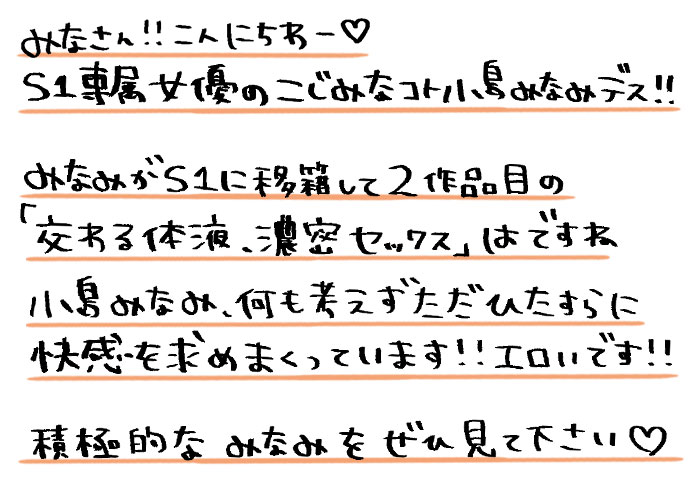 みなさん!!こんにちわー♡
S1専属女優のこじみなコト小島みなみデス!!
みなみがS1に移籍して2作品目の
「交わる体液、濃密セックス」はですね
小島みなみ、何も考えずただひたすらに
快感を求めまくっています!!エロいです!!
積極的なみなみをぜひ見て下さい♡